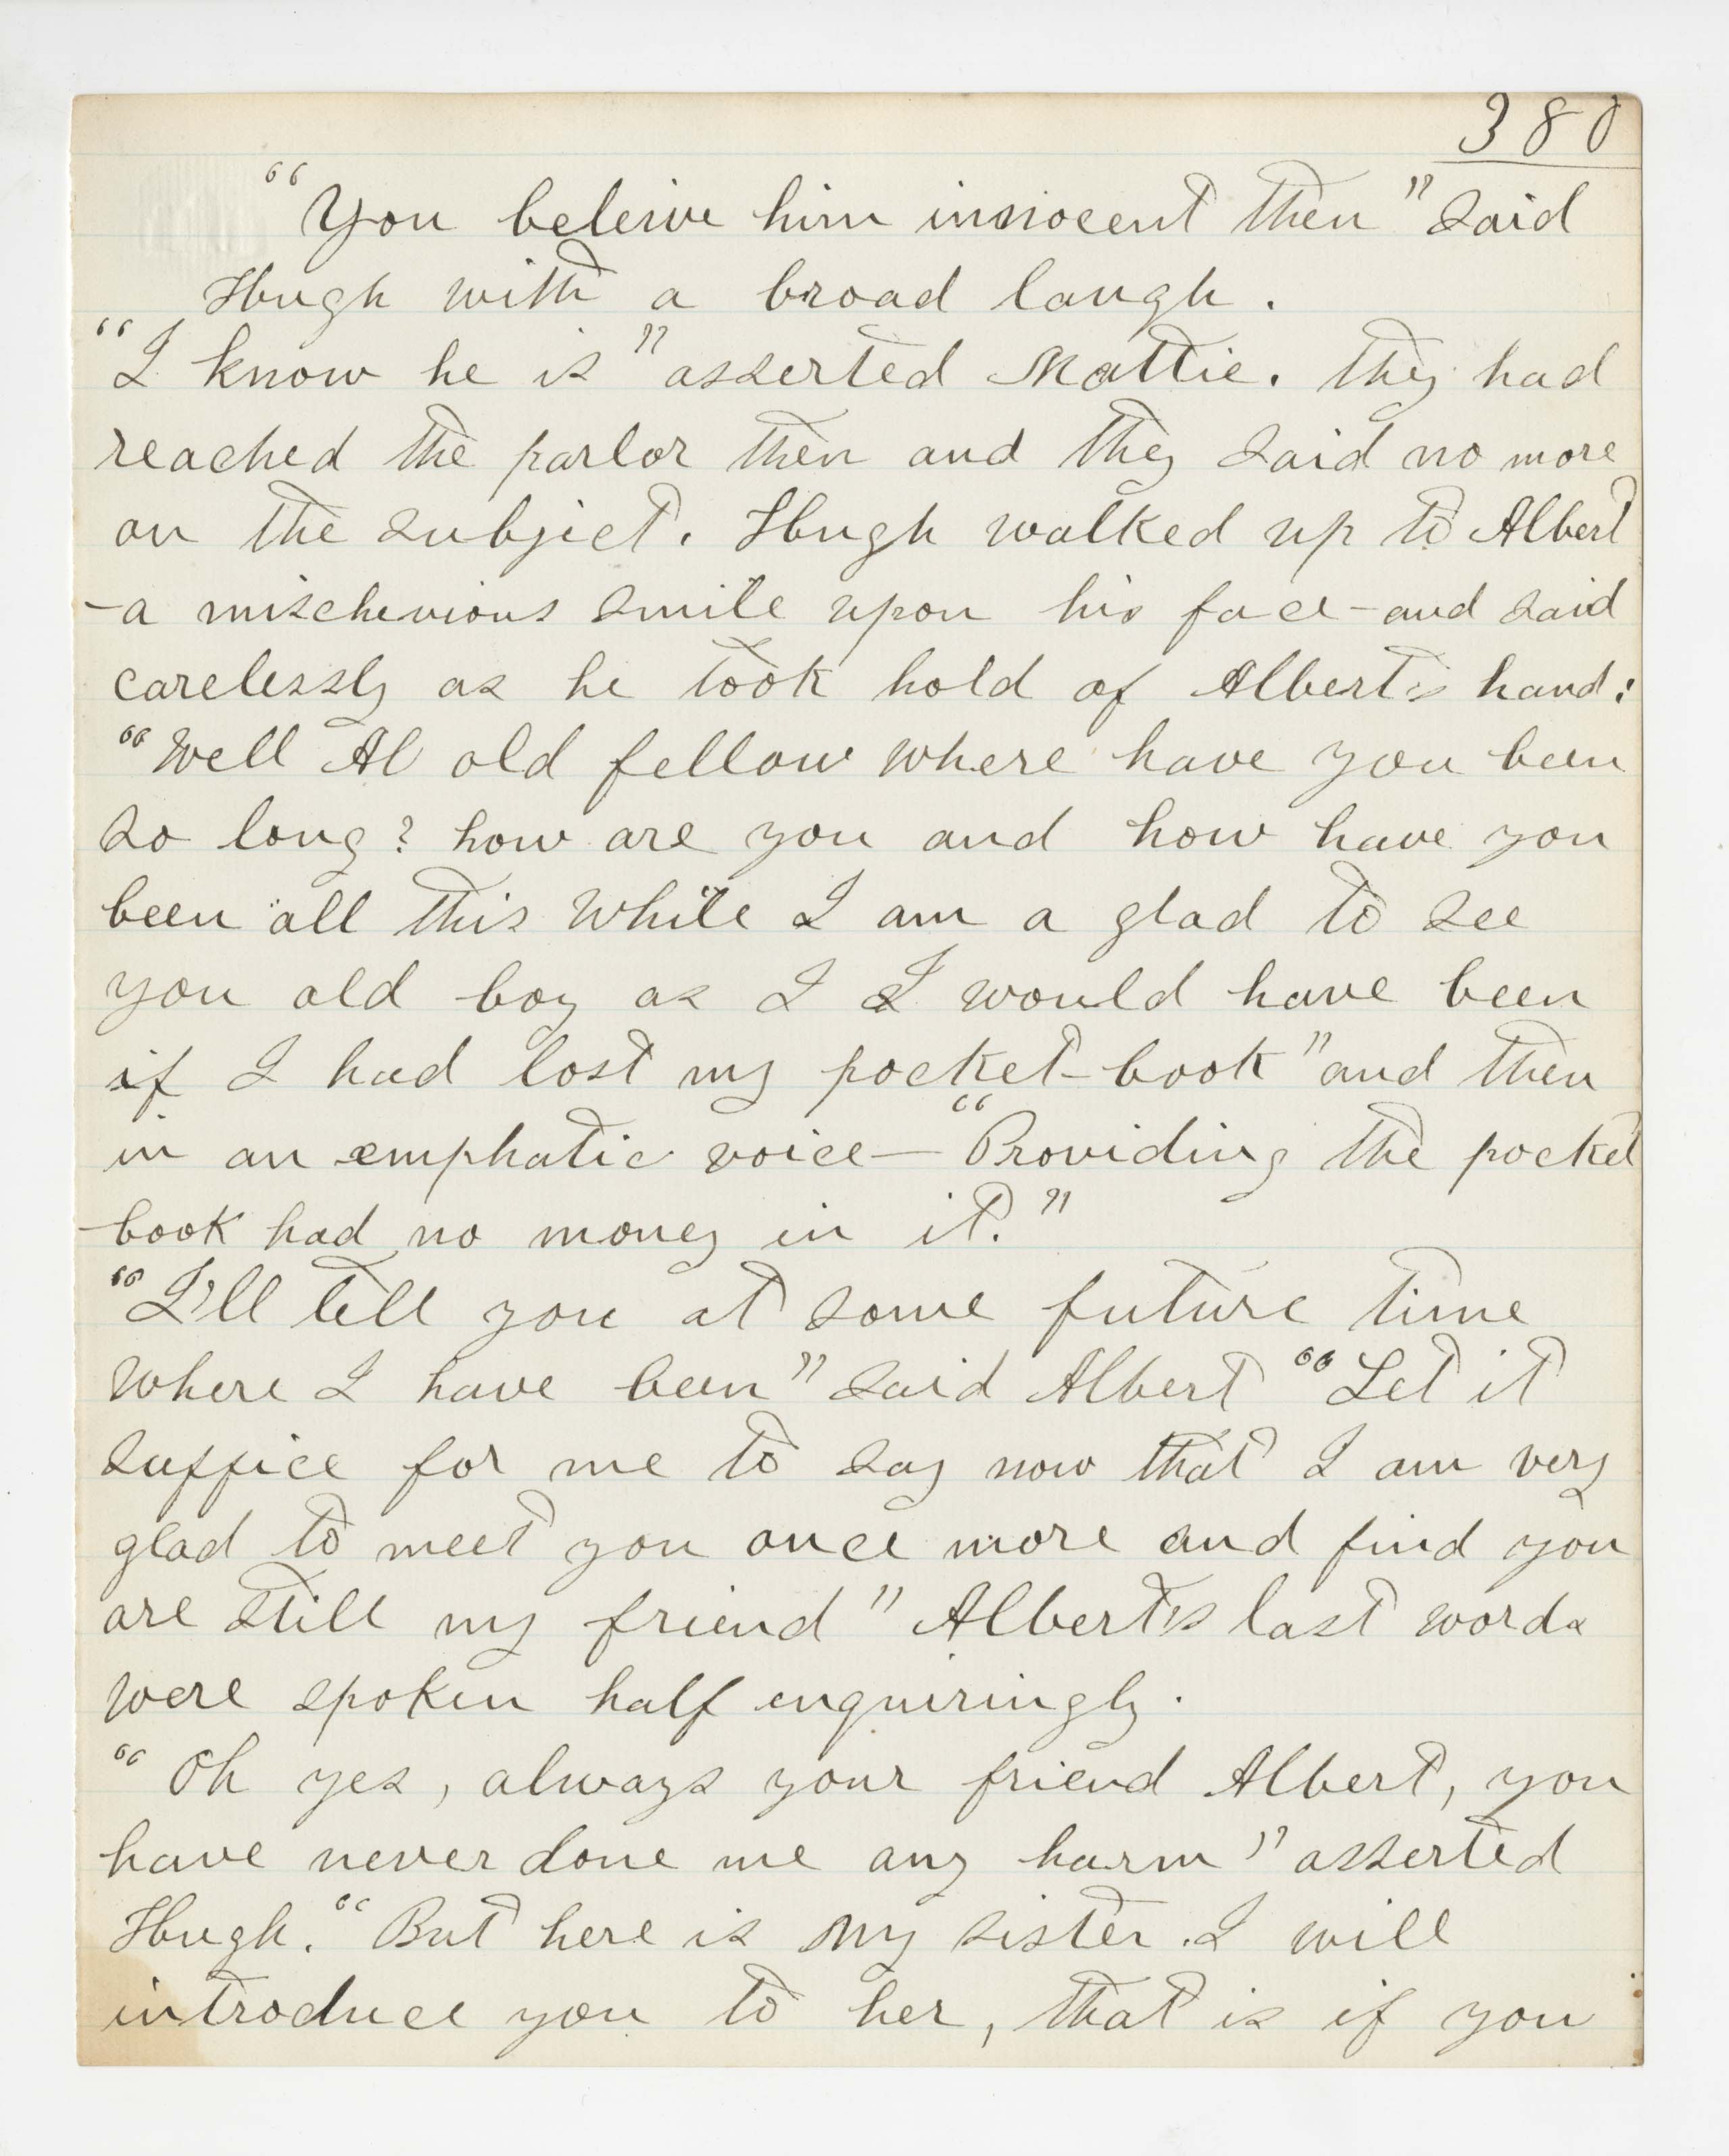 380
"You beleive him innocent then" said
Hugh with a broad laugh.
"I know he is" asserted Mattie. They had
reached the parlor then and they said no more
on the subject. Hugh walked up to Albert
-a mischevious smile upon his face-and said
carelessly as he took hold of Albert's hand:
"Well Al old fellow where have you been
so long? how are you and how have you
been all this while I am a glad to see
you old boy as I I would have been
if I had lost my pocket-book" and then
in an emphatic voice— "Providing the pocket
-book had no money in it."
"I'll tell you at some future time
where I have been" said Albert "Let it
suffice for me to say now that I am very
glad to meet you once more and find you
are still my friend" Albert's last words
were spoken half enquiringly.
"Oh yes, always your friend Albert, you
have never done me any harm" asserted
Hugh. "But here is my sister. I will
introduce you to her, that is if you